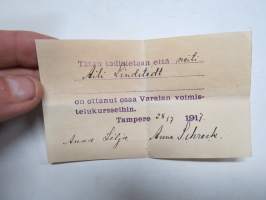 Täten todistetaan että neiti
Aili Lindstedt
on ottanut osaa Varalan voimis-
telukursseihin.
Tampere 28/7 1917.
Anna Lilja Anna Schrock.